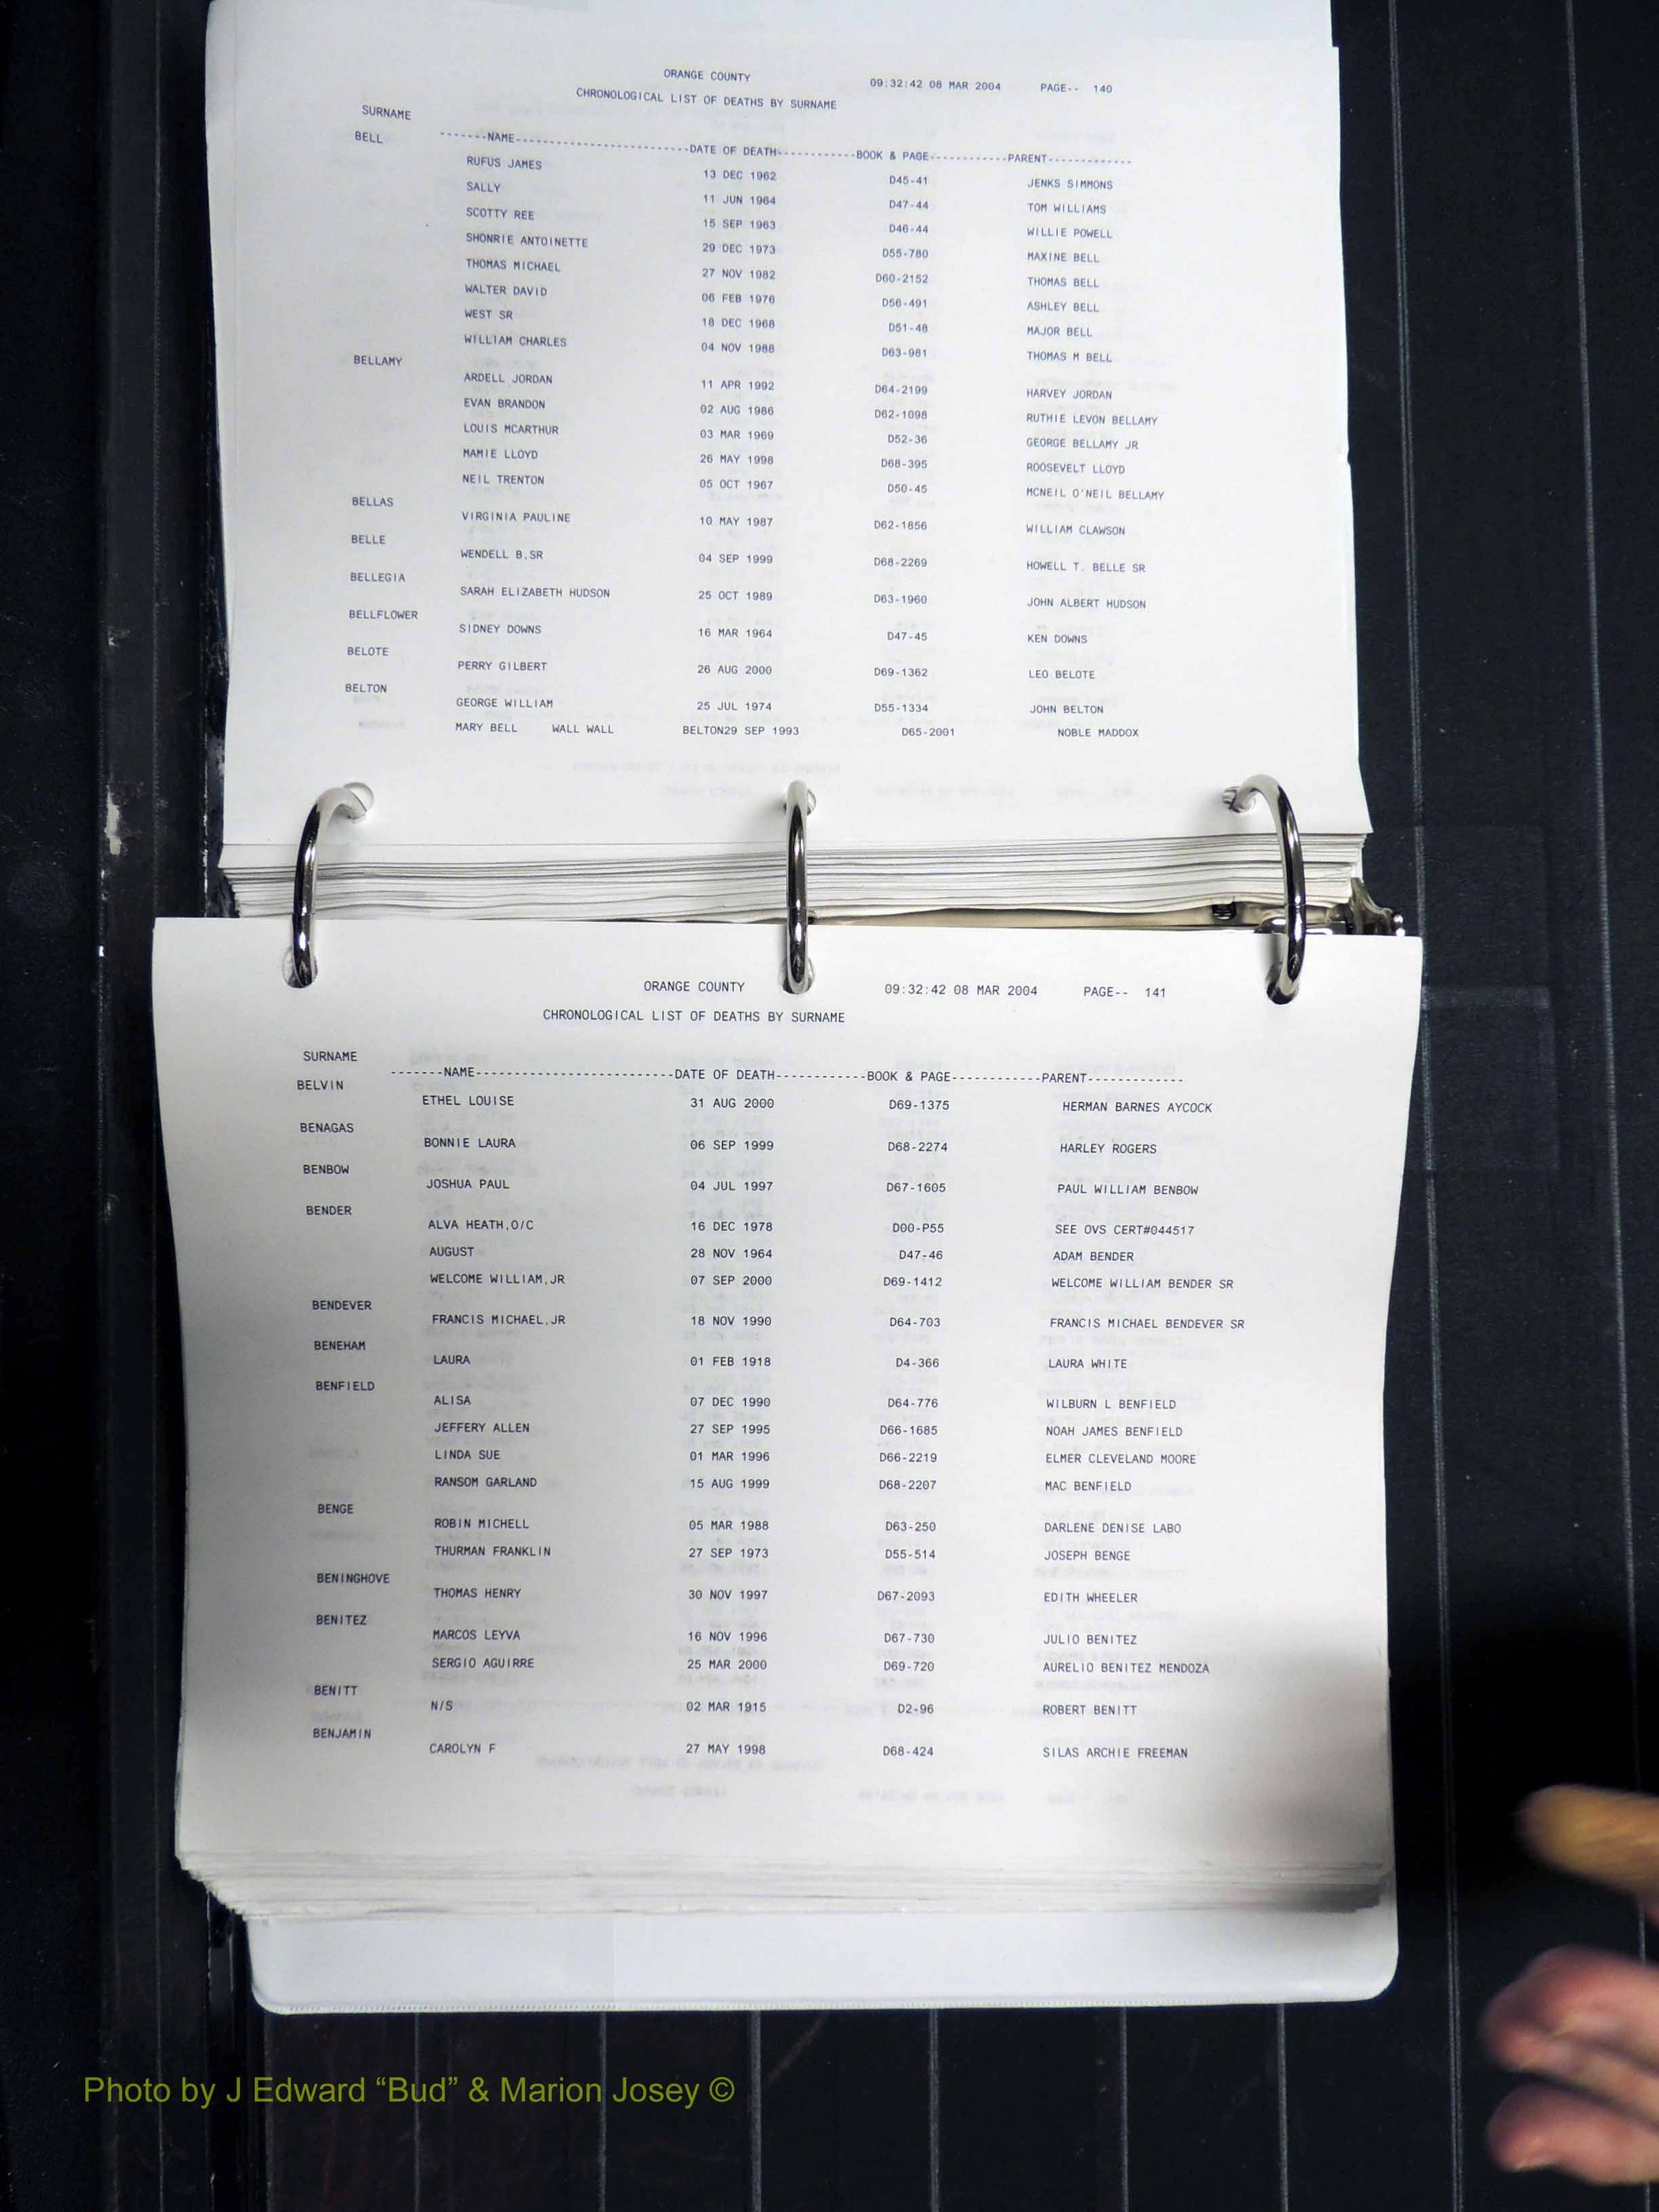 ORANGE COUNTY 09:32:42 08 MAR 2004 PAGE-- 140
CHRONOLOGICAL LIST OF DEATHS BY SURNAME
SURNAME
-------NAME--------------------------DATE OF DEATH-----------BOOK & PAGE-----------PARENT-------------
BELL
RUFUS JAMES 13 DEC 1962 D45-41 JENKS SIMMONS
SALLY 11 JUN 1964 D47-44 TOM WILLIAMS
SCOTTY REE 15 SEP 1963 D46-44 WILLIE POWELL
SHONRIE ANTOINETTE 29 DEC 1973 D55-780 MAXINE BELL
THOMAS MICHAEL 27 NOV 1982 D60-2152 THOMAS BELL
WALTER DAVID 06 FEB 1976 D56-491 ASHLEY BELL
WEST SR 18 DEC 1968 D51-48 MAJOR BELL
WILLIAM CHARLES 04 NOV 1988 D63-981 THOMAS M BELL
BELLAMY
ARDELL JORDAN 11 APR 1992 D64-2199 HARVEY JORDAN
EVAN BRANDON 02 AUG 1986 D62-1098 RUTHIE LEVON BELLAMY
LOUIS MCARTHUR 03 MAR 1969 D52-36 GEORGE BELLAMY JR
MAMIE LLOYD 26 MAY 1998 D68-395 ROOSEVELT LLOYD
NEIL TRENTON 05 OCT 1967 D50-45 MCNEIL O'NEIL BELLAMY
BELLAS
VIRGINIA PAULINE 10 MAY 1987 D62-1856 WILLIAM CLAWSON
BELLE
WENDELL B,SR 04 SEP 1999 D68-2269 HOWELL T. BELLE SR
BELLEGIA
SARAH ELIZABETH HUDSON 25 OCT 1989 D63-1960 JOHN ALBERT HUDSON
BELLFLOWER
SIDNEY DOWNS 16 MAR 1964 D47-45 KEN DOWNS
BELOTE
PERRY GILBERT 26 AUG 2000 D69-1362 LEO BELOTE
BELTON
GEORGE WILLIAM 25 JUL 1974 D55-1334 JOHN BELTON
MARY BELL WALL WALL BELTON29 SEP 1993 D65-2001 NOBLE MADDOX
ORANGE COUNTY 09:32:42 08 MAR 2004 PAGE-- 141
CHRONOLOGICAL LIST OF DEATHS BY SURNAME
SURNAME
-------NAME--------------------------DATE OF DEATH------------BOOK & PAGE-----------PARENT-------------
BELVIN
ETHEL LOUISE 31 AUG 2000 D69-1375 HERMAN BARNES AYCOCK
BENAGAS
BONNIE LAURA 06 SEP 1999 D68-2274 HARLEY ROGERS
BENBOW
JOSHUA PAUL 04 JUL 1997 D67-1605 PAUL WILLIAM BENBOW
BENDER
ALVA HEATH,O/C 16 DEC 1978 D00-P55 SEE OVS CERT#044517
AUGUST 28 NOV 1964 D47-46 ADAM BENDER
WELCOME WILLIAM,JR 07 SEP 2000 D69-1412 WELCOME WILLIAM BENDER SR
BENDEVER
FRANCIS MICHAEL,JR 18 NOV 1990 D64-703 FRANCIS MICHAEL BENDEVER SR
BENEHAM
LAURA 01 FEB 1918 D4-366 LAURA WHITE
BENFIELD
ALISA 07 DEC 1990 D64-776 WILBURN L BENFIELD
JEFFERY ALLEN 27 SEP 1995 D66-1685 NOAH JAMES BENFIELD
LINDA SUE 01 MAR 1996 D66-2219 ELMER CLEVELAND MOORE
RANSOM GARLAND 15 AUG 1999 D68-2207 MAC BENFIELD
BENGE
ROBIN MICHELL 05 MAR 1988 D63-250 DARLENE DENISE LABO
THURMAN FRANKLIN 27 SEP 1973 D55-514 JOSEPH BENGE
BENINGHOVE
THOMAS HENRY 30 NOV 1997 D67-2093 EDITH WHEELER
BENITEZ
MARCOS LEYVA 16 NOV 1996 D67-730 JULIO BENITEZ
SERGIO AGUIRRE 25 MAR 2000 D69-720 AURELIO BENITEZ MENDOZA
BENITT
N/S 02 MAR 1915 D2-96 ROBERT BENITT
BENJAMIN
CAROLYN F 27 MAY 1998 D68-424 SILAS ARCHIE FREEMAN
Photo by J Edward “Bud” & Marion Josey ©